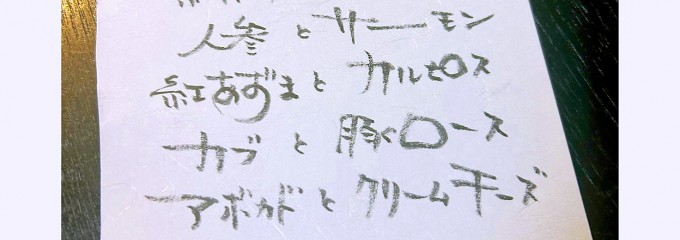 人参とサーモン
紅あずまとカルピロス
カブと豚ロース
アボカドとクリームチーズ